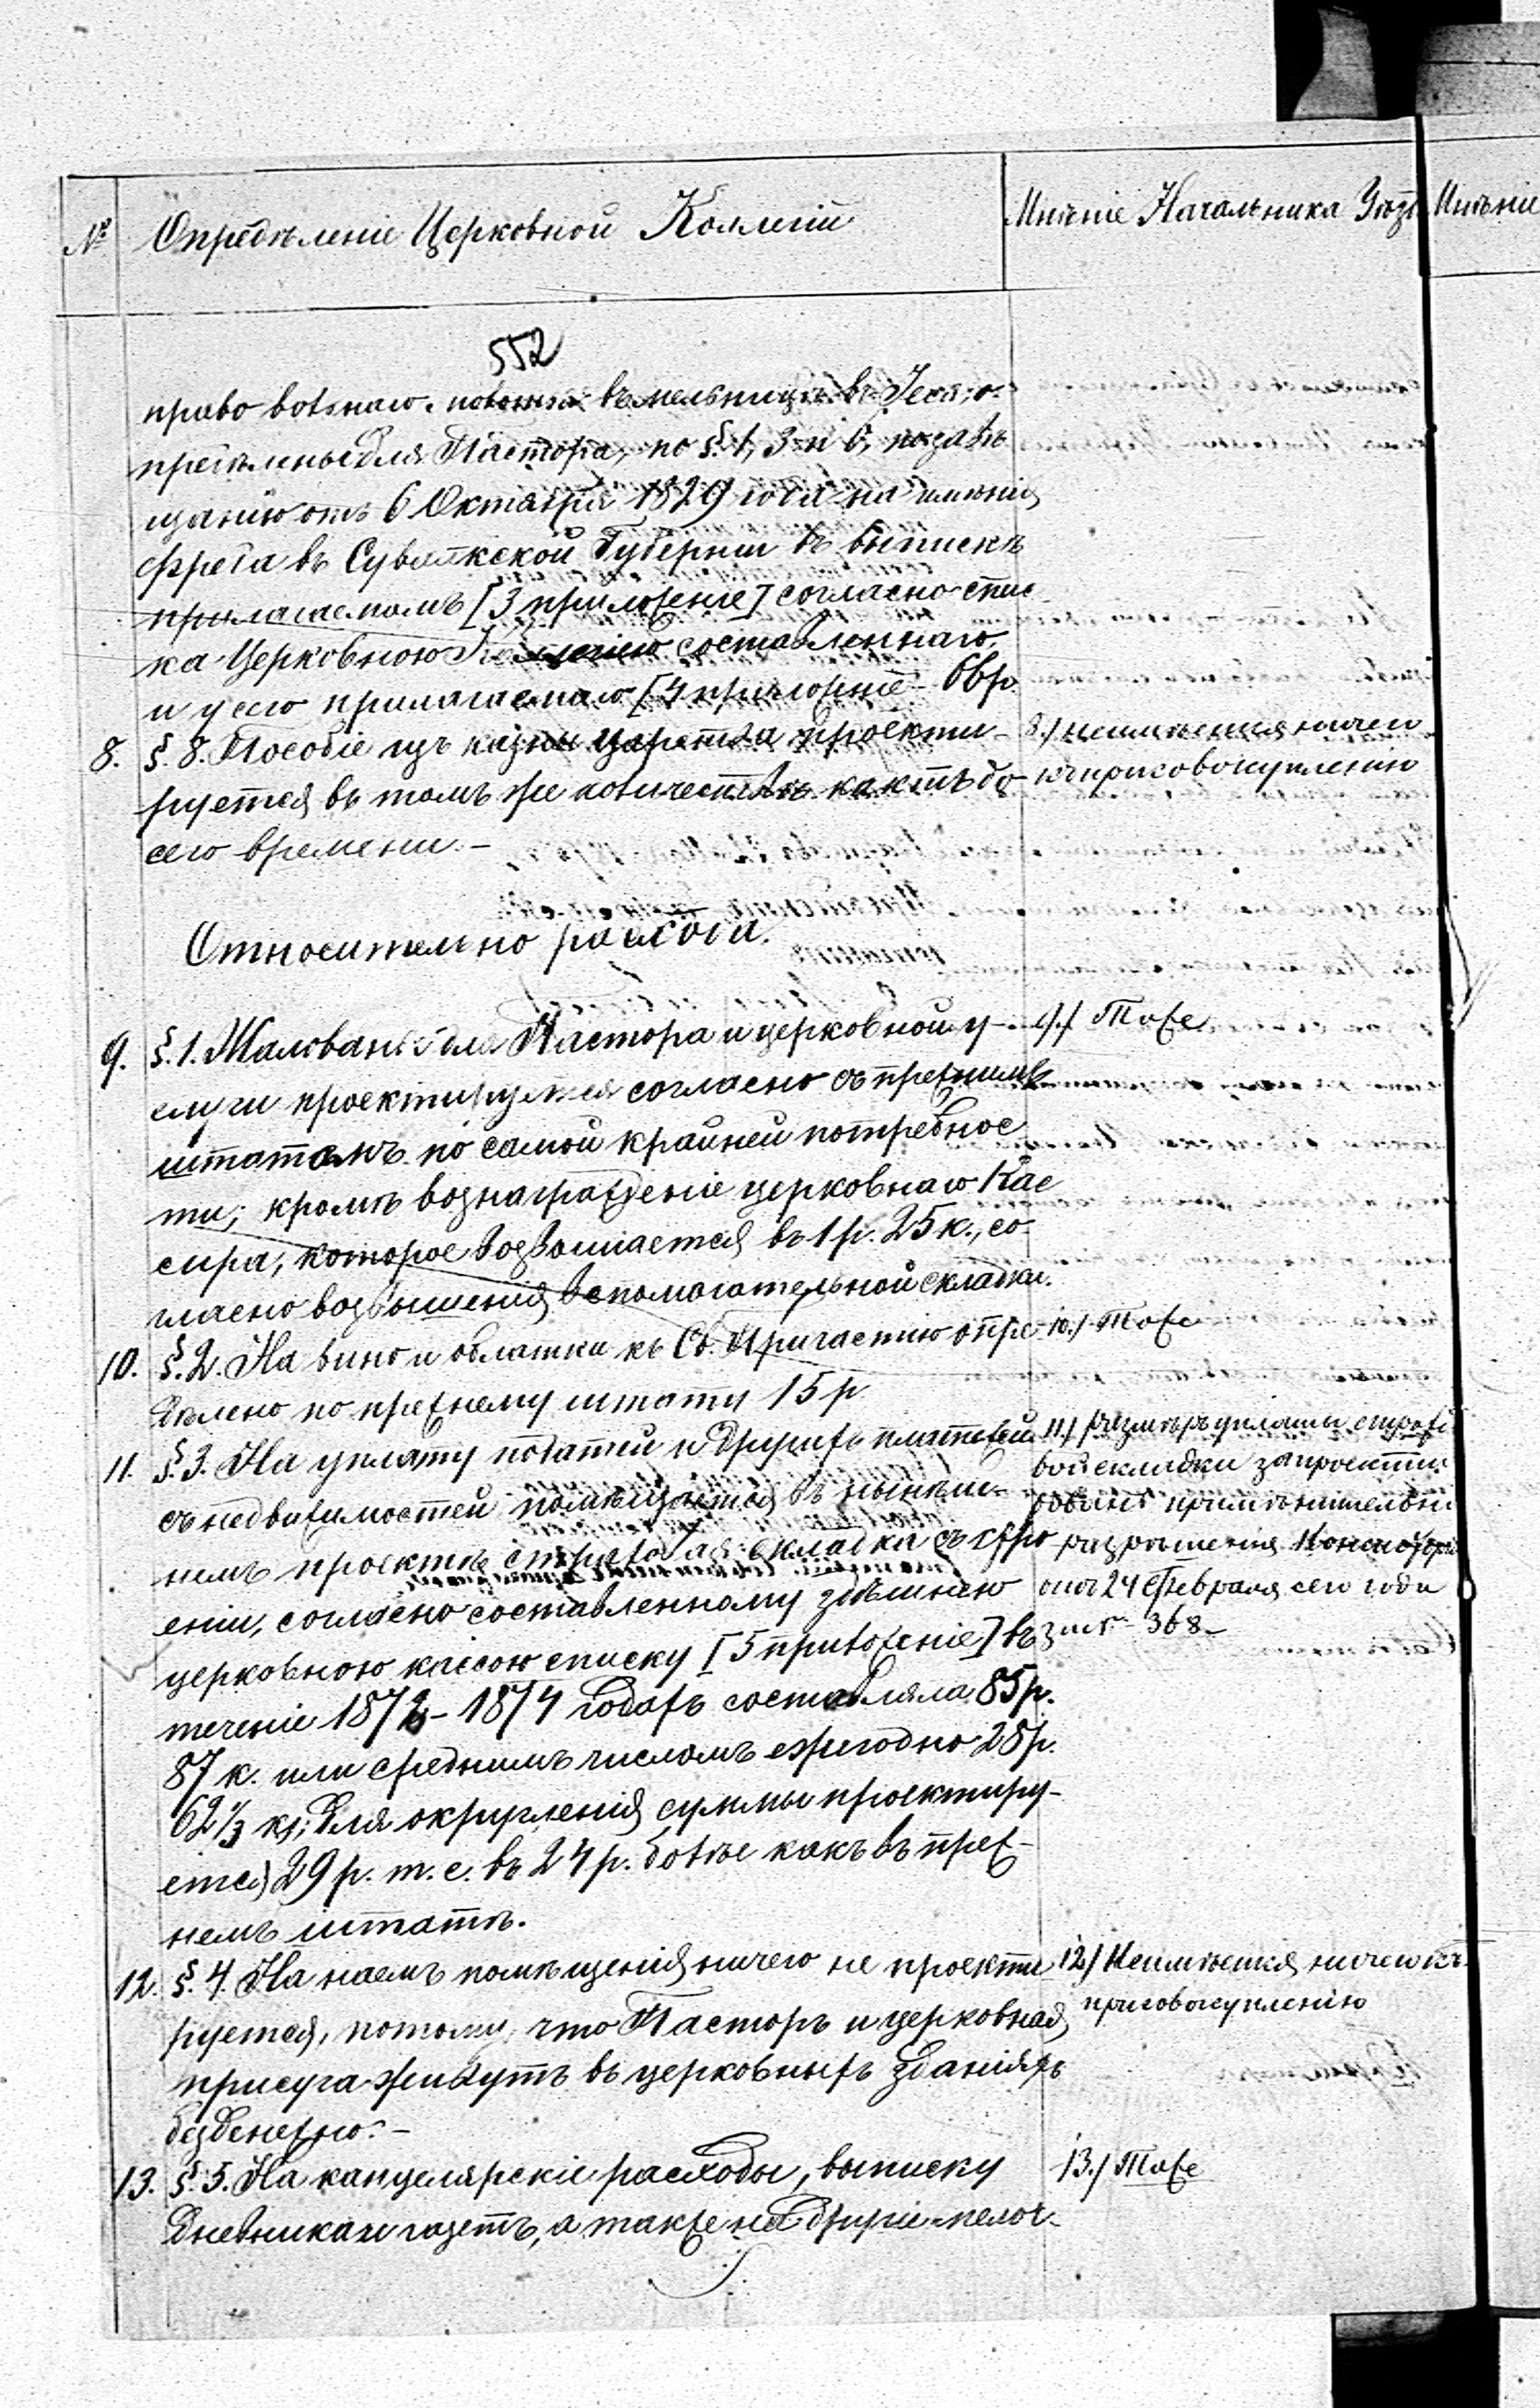 № Опредѣленіе Церковной Коллегіи
Мнѣніе Начальника Уѣзд
Мнѣніе
552
право вольнаго въ мельницѣ въ о-
предѣленые для Пастора, по §. 1, 3 и 6, по завѣ
щанію отъ 6 Октября 1829 года на имѣнія
въ Сувалкской Губерніи въ выпискѣ
прилагаемомъ [3 приложеніе] согласно спис
ка Церковною Коллегіею составленнаго
и у сего прилагаемаго [4 приложеніе]
8. §. 8. Пособіе изъ казны Царства проекти-
руется въ томъ же количествѣ какъ до
сего времени.-
8.) неимѣется ничего
къ присовокупленію
Относительно расхода.
9. §. 1. Жалованье для Пастора и церковной у-
слуги проектируется согласно съ прежнимъ
штатомъ по самой крайней потребнос
ти; кромѣ вознагражденіе церковнаго Кас
сира, которое возвышается въ 1 р. 25 к., со-
гласно возвышенія вспомогательной складки.
9.) Тоже
10. §. 2. На вино и облатки къ Св. Причастію опре-
дѣлено по прежнему штату 15 р
10.) Тоже
11. §. 3. На уплату податей и другихъ платежей
съ недвижимостей помѣщается въ нынѣш-
немъ проектѣ страховая складка съ стро
еніи, согласно составленному здѣшнею
церковною кассою списку [5 приложеніе] въ
теченіе 1872-1874 годахъ составляла 85 р.
87 к. или среднимъ числомъ ежегодно 28 р.
62 1/3 к; для округленія суммы проектиру-
ется 29 р. т. е. въ 24 р. болѣе какъ въ преж-
немъ штатѣ.
11.) размѣръ уплаты страхо
вой складки запроекти
рованъ примѣнительно
разрѣшенія Консисторіи
отъ 24 Февраля сего года
за № 368_
12. §. 4. На наемъ помѣщенія ничего не проекти
руется, потому, что Пасторъ и церковная
присуга живутъ въ церковныхъ зданіяхъ
безденежно.-
12.) Неимѣется ничего къ
присовокупленію
13. §. 5. На канцелярскіе расходы, выписку
дневника и газетъ, а также на другіе мелоч-
13.) Тоже